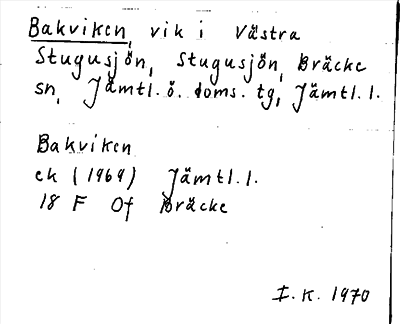 Bakviken, vik i Västra
Stugusjön, Stugusjön, Bräcke
sn, Jämtl. ö. doms. tg, Jämtl. l.
Bakviken
ek (1969) Jämtl. l.
18 F Of Bräcke
I. K. 1970